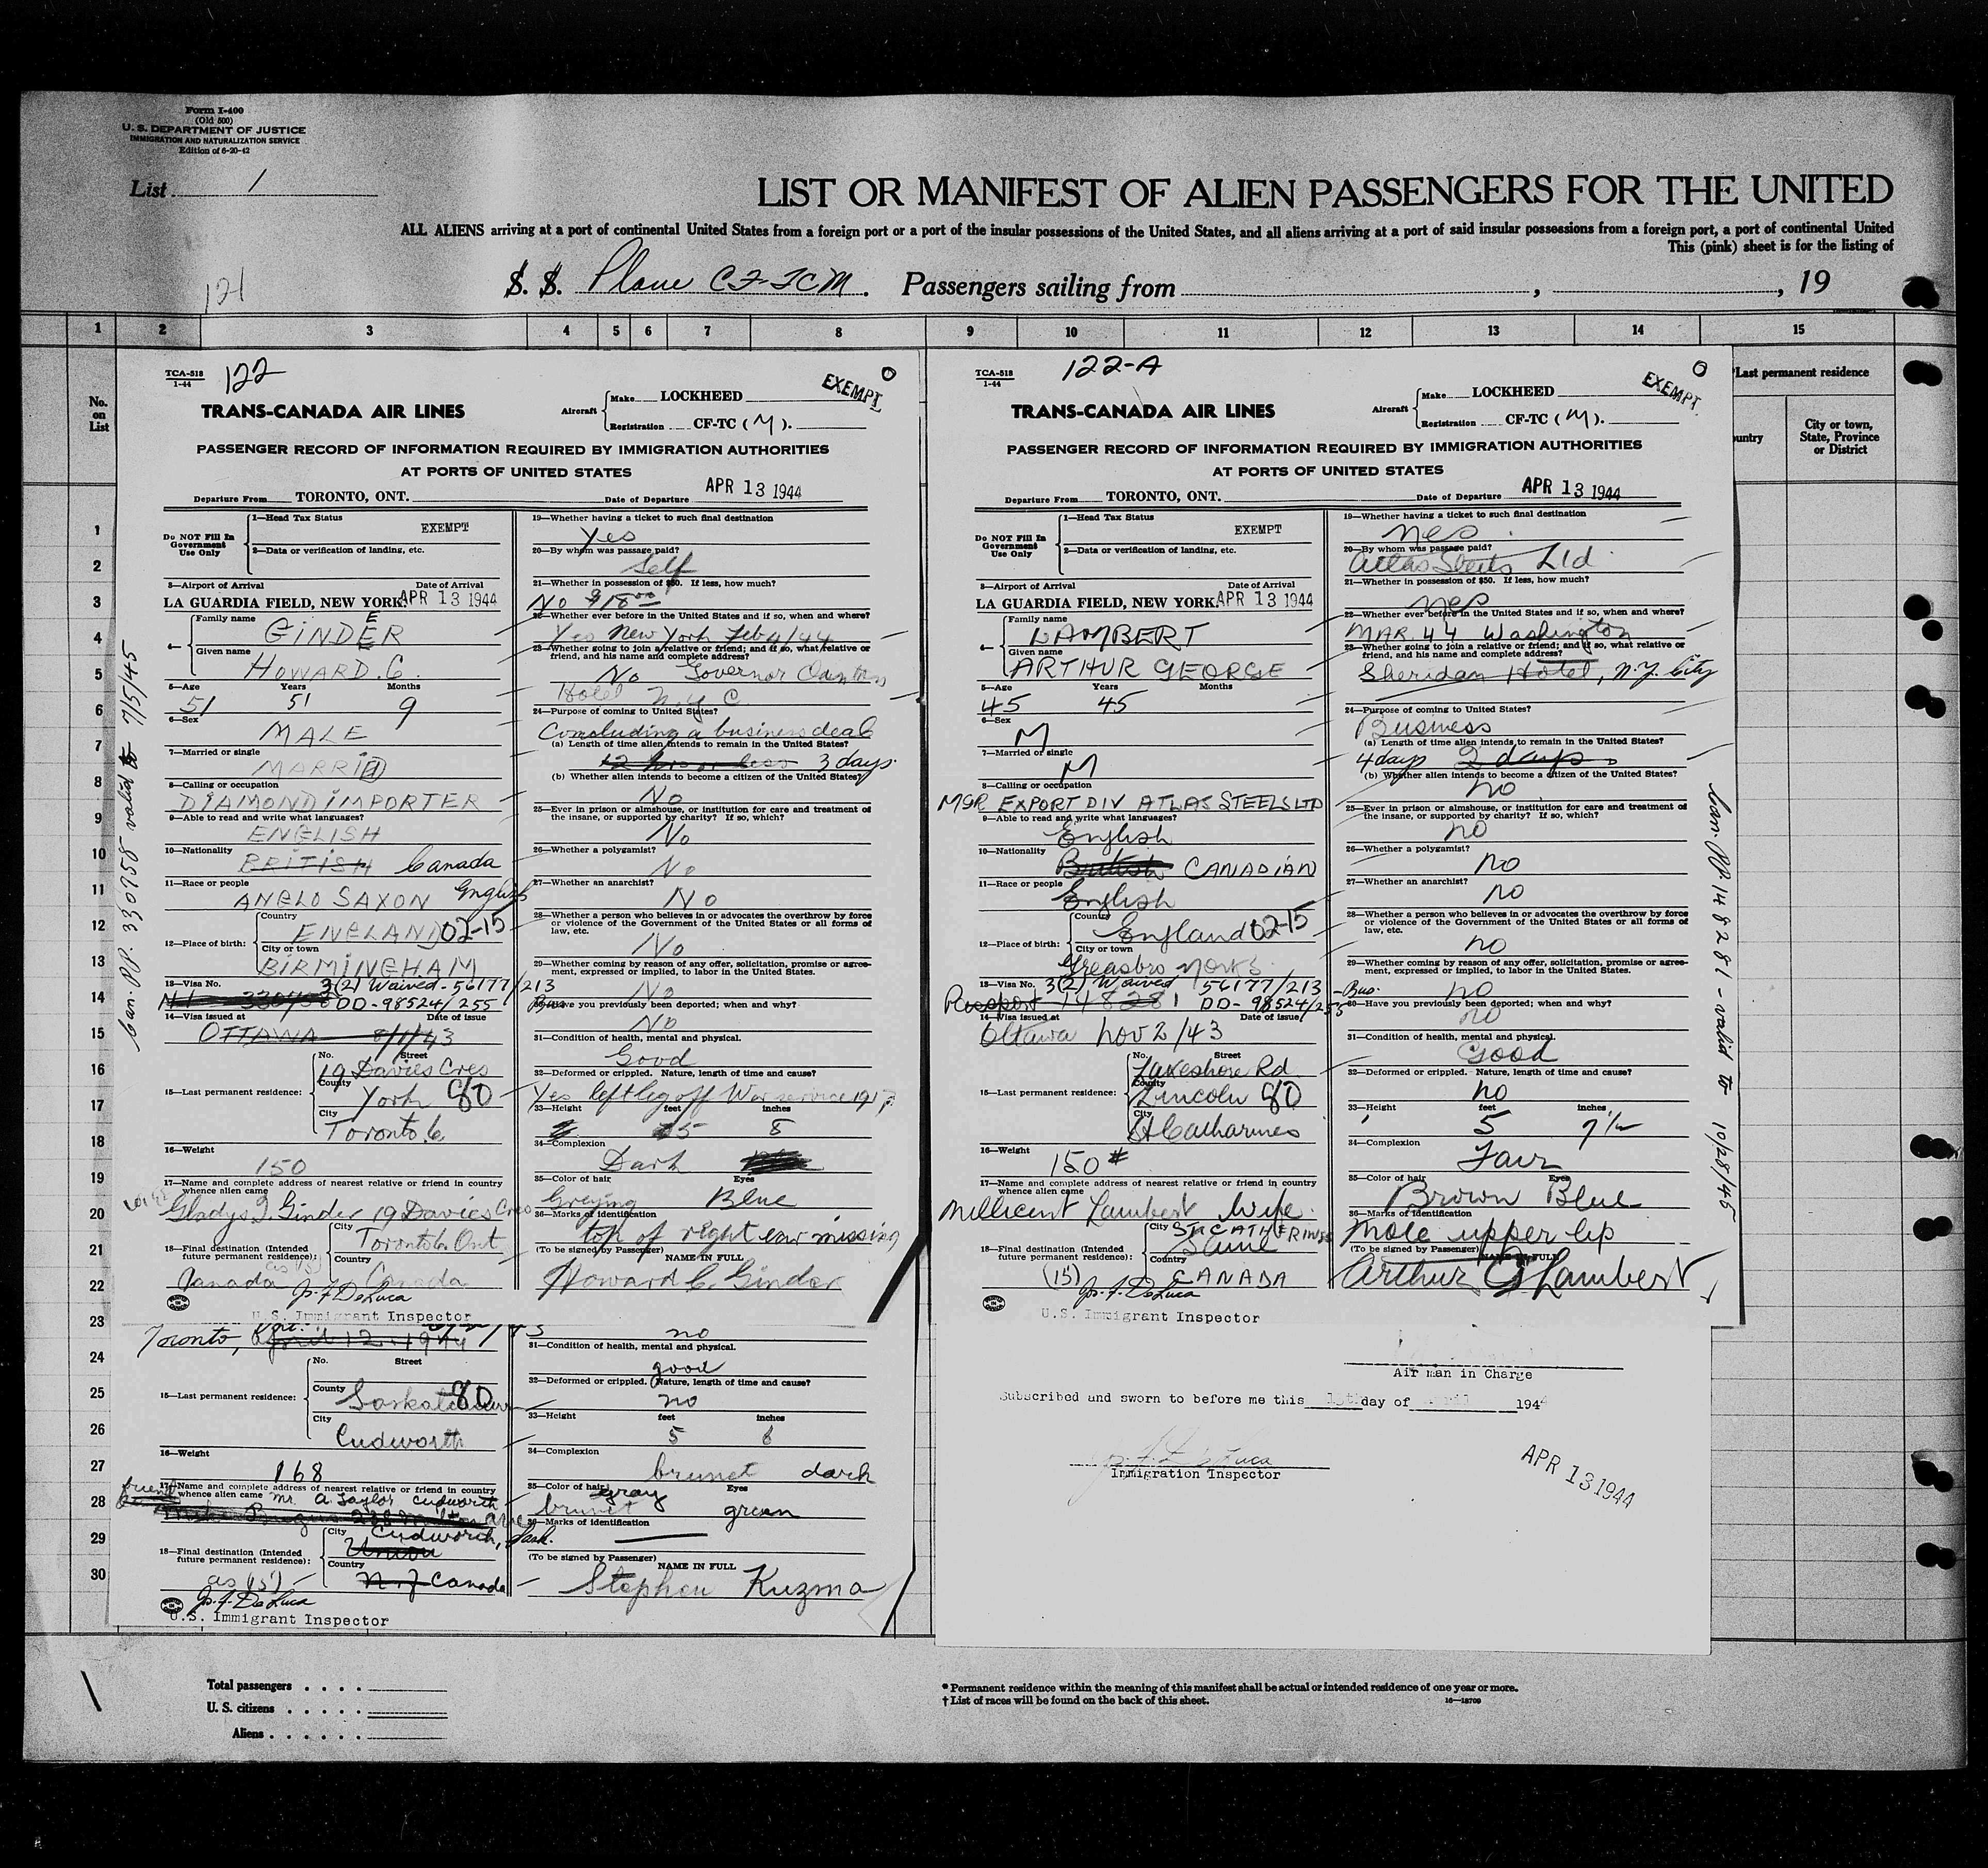 Form I-400
(Old 500)
U. S. DEPARTMENT OF JUSTICE
IMMIGRATION AND NATURALIZATION SERVICE
Edition of 6-20-42
List 1
LIST OR MANIFEST OF ALIEN PASSENGERS FOR THE UNITED
ALL ALIENS arriving at a port of continental United States from a foreign port or a port of the insular possessions of the United States, and all aliens arriving at a port of said insular possessions from a foreign port, a port of continental United
This (pink) sheet is for the listing of
121
S. S. Plane CF-TCM. Passengers sailing from , , 19
1 2 3 4 5 6 7 8 9 10 11 12 13 14 15
No. on List
*Last permanent residence
untry
City or town, State, Province or District
1
2
3
4
5
6
7
8
9
10
11
12
13
14
15
16
17
18
19
20
21
22
23
24
25
26
27
28
29
30
TCA-518
1-44
122
EXEMPT
TRANS-CANADA AIR LINES
Aircraft
Make LOCKHEED
Registration CF-TC (M).
PASSENGER RECORD OF INFORMATION REQUIRED BY IMMIGRATION AUTHORITIES
AT PORTS OF UNITED STATES
Departure From TORONTO, ONT. Date of Departure APR 13 1944
Do NOT Fill In Government Use Only
1—Head Tax Status EXEMPT
2—Data or verification of landing, etc.
3—Airport of Arrival Date of Arrival
LA GUARDIA FIELD, NEW YORK. APR 13 1944
4— Family name
GINDER
Given name
HOWARD. C.
5—Age Years Months
51 51 9
6—Sex
MALE
7—Married or single
MARRIED
8—Calling or occupation
DIAMOND IMPORTER
9—Able to read and write what languages?
ENGLISH
10—Nationality
BRITISH Canada
11—Race or people
ANGLO SAXON English
12—Place of birth:
Country
ENGLAND 02-15
City or town
BIRMINGHAM
13—Visa No. 3(2) Waived - 56177/213
DD-98524/255
14—Visa issued at Date of issue
OTTAWA 8/1/43
15—Last permanent residence:
No. Street
19 Davies Cres
County
York 80
City
Toronto 6.
16—Weight
150
17—Name and complete address of nearest relative or friend in country whence alien came
Gladys I. Ginder 19 Davies Cres
18—Final destination (Intended future permanent residence):
City
Toronto 6 Ont
Country
Canada
Canada
Jos. F. DeLuca
U.S. Immigrant Inspector
Can. PP. 330958 valid to 7/5/45
19—Whether having a ticket to such final destination
Yes
20—By whom was passage paid?
Self
21—Whether in possession of $50. If less, how much?
No $18.00
22—Whether ever before in the United States and if so, when and where?
Yes New York Feb 4/44
23—Whether going to join a relative or friend; and if so, what relative or friend, and his name and complete address?
No Governor Clinton
Hotel N.Y.C.
24—Purpose of coming to United States?
Concluding a business deal
(a) Length of time alien intends to remain in the United States?
12 hrs or less 3 days.
(b) Whether alien intends to become a citizen of the United States?
No
25—Ever in prison or almshouse, or institution for care and treatment of the insane, or supported by charity? If so, which?
No
26—Whether a polygamist?
No
27—Whether an anarchist?
No
28—Whether a person who believes in or advocates the overthrow by force or violence of the Government of the United States or all forms of law, etc.
No
29—Whether coming by reason of any offer, solicitation, promise or agreement, expressed or implied, to labor in the United States.
No
30—Have you previously been deported; when and why?
No
31—Condition of health, mental and physical.
Good
32—Deformed or crippled. Nature, length of time and cause?
Yes left leg off War service 1917
33—Height feet inches
5 8
34—Complexion
Dark
35—Color of hair Eyes
Greying Blue
36—Marks of identification
top of right ear missing
(To be signed by Passenger) NAME IN FULL
Howard C. Ginder
TCA-518
1-44
122-A
EXEMPT
TRANS-CANADA AIR LINES
Aircraft
Make LOCKHEED
Registration CF-TC (M).
PASSENGER RECORD OF INFORMATION REQUIRED BY IMMIGRATION AUTHORITIES
AT PORTS OF UNITED STATES
Departure From TORONTO, ONT. Date of Departure APR 13 1944
Do NOT Fill In Government Use Only
1—Head Tax Status EXEMPT
2—Data or verification of landing, etc.
3—Airport of Arrival Date of Arrival
LA GUARDIA FIELD, NEW YORK APR 13 1944
4— Family name
LAMBERT
Given name
ARTHUR GEORGE
5—Age Years Months
45 45
6—Sex
M
7—Married or single
M
8—Calling or occupation
MGR EXPORT DIV ATLAS STEELS LTD
9—Able to read and write what languages?
English
10—Nationality
British CANADIAN
11—Race or people
English
12—Place of birth:
Country
England 02-15
City or town
Yorks.
13—Visa No. 3(2) Waived 56177/213 - Bus.
Passport 148281 DD-98524/255
14—Visa issued at Date of issue
Ottawa Nov 2/43
15—Last permanent residence:
No. Street
Lakeshore Rd
County
Lincoln 80
City
St Catharines
16—Weight
150#
17—Name and complete address of nearest relative or friend in country whence alien came
Millicent Lambert Wife.
18—Final destination (Intended future permanent residence):
City ST. CATHERINES
Same
Country
(15) CANADA
Jos. F. DeLuca
U.S. Immigrant Inspector
19—Whether having a ticket to such final destination
yes
20—By whom was passage paid?
Atlas Steels Ltd
21—Whether in possession of $50. If less, how much?
yes
22—Whether ever before in the United States and if so, when and where?
MAR. 44 Washington
23—Whether going to join a relative or friend; and if so, what relative or friend, and his name and complete address?
Sheridan Hotel, N.Y. City
24—Purpose of coming to United States?
Business
(a) Length of time alien intends to remain in the United States?
4 days 2 days
(b) Whether alien intends to become a citizen of the United States?
no
25—Ever in prison or almshouse, or institution for care and treatment of the insane, or supported by charity? If so, which?
no
26—Whether a polygamist?
no
27—Whether an anarchist?
no
28—Whether a person who believes in or advocates the overthrow by force or violence of the Government of the United States or all forms of law, etc.
no
29—Whether coming by reason of any offer, solicitation, promise or agreement, expressed or implied, to labor in the United States.
no
30—Have you previously been deported; when and why?
no
31—Condition of health, mental and physical.
Good
32—Deformed or crippled. Nature, length of time and cause?
no
33—Height feet inches
5 7 1/2
34—Complexion
Fair
35—Color of hair Eyes
Brown Blue
36—Marks of identification
Mole upper lip
(To be signed by Passenger) NAME IN FULL
Arthur G Lambert
Can. PP 148281 - valid to 10/28/45
Toronto, April 12, 1944
15—Last permanent residence:
No. Street
County
Saskatchewan 80
City
Cudworth
16—Weight
168
17—Name and complete address of nearest relative or friend in country whence alien came
friend
Mr. A Taylor Cudworth
18—Final destination (Intended future permanent residence):
City Cudworth, Sask.
Union
Country
N.J. Canada
as (15)
Jos. F. DeLuca
U.S. Immigrant Inspector
no
31—Condition of health, mental and physical.
good
32—Deformed or crippled. Nature, length of time and cause?
no
33—Height feet inches
5 8
34—Complexion
brunet dark
35—Color of hair Eyes
gray
brunet green
36—Marks of identification
(To be signed by Passenger) NAME IN FULL
Stephen Kuzma
Air man in Charge
Subscribed and sworn to before me this day of 194
Immigration Inspector
APR 13 1944
Total passengers
U. S. citizens
Aliens
* Permanent residence within the meaning of this manifest shall be actual or intended residence of one year or more.
† List of races will be found on the back of this sheet.